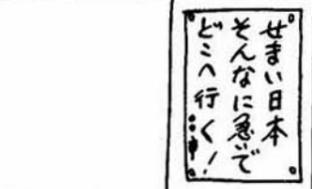 せまい日本
そんなに急いで
どこへ行く!